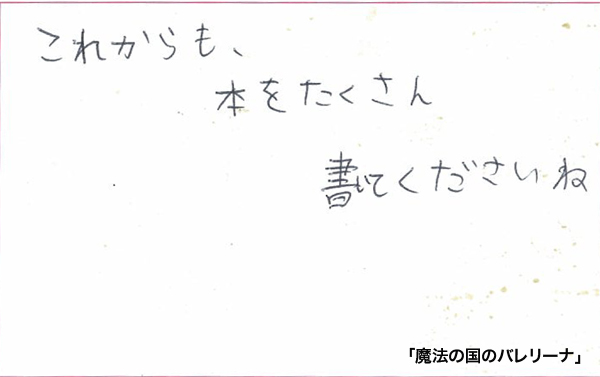 これからも、
本をたくさん
書いてくださいね
「魔法の国のバレリーナ」